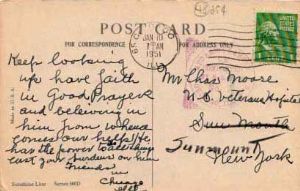 POST CARD
FOR CORRESPONDENCE
FOR ADDRESS ONLY
JAN 10
7 AM
1951
Keep looking
up have faith
in God Prayer
and believing in
him from whence
cometh our help. He
has the power to
cast your burdens on him
Friends
in Chicago
Mr Chas Moore
U.S. Veterans Hospital
Sunmount
New York
Made in U.S.A.
Sunshine Line